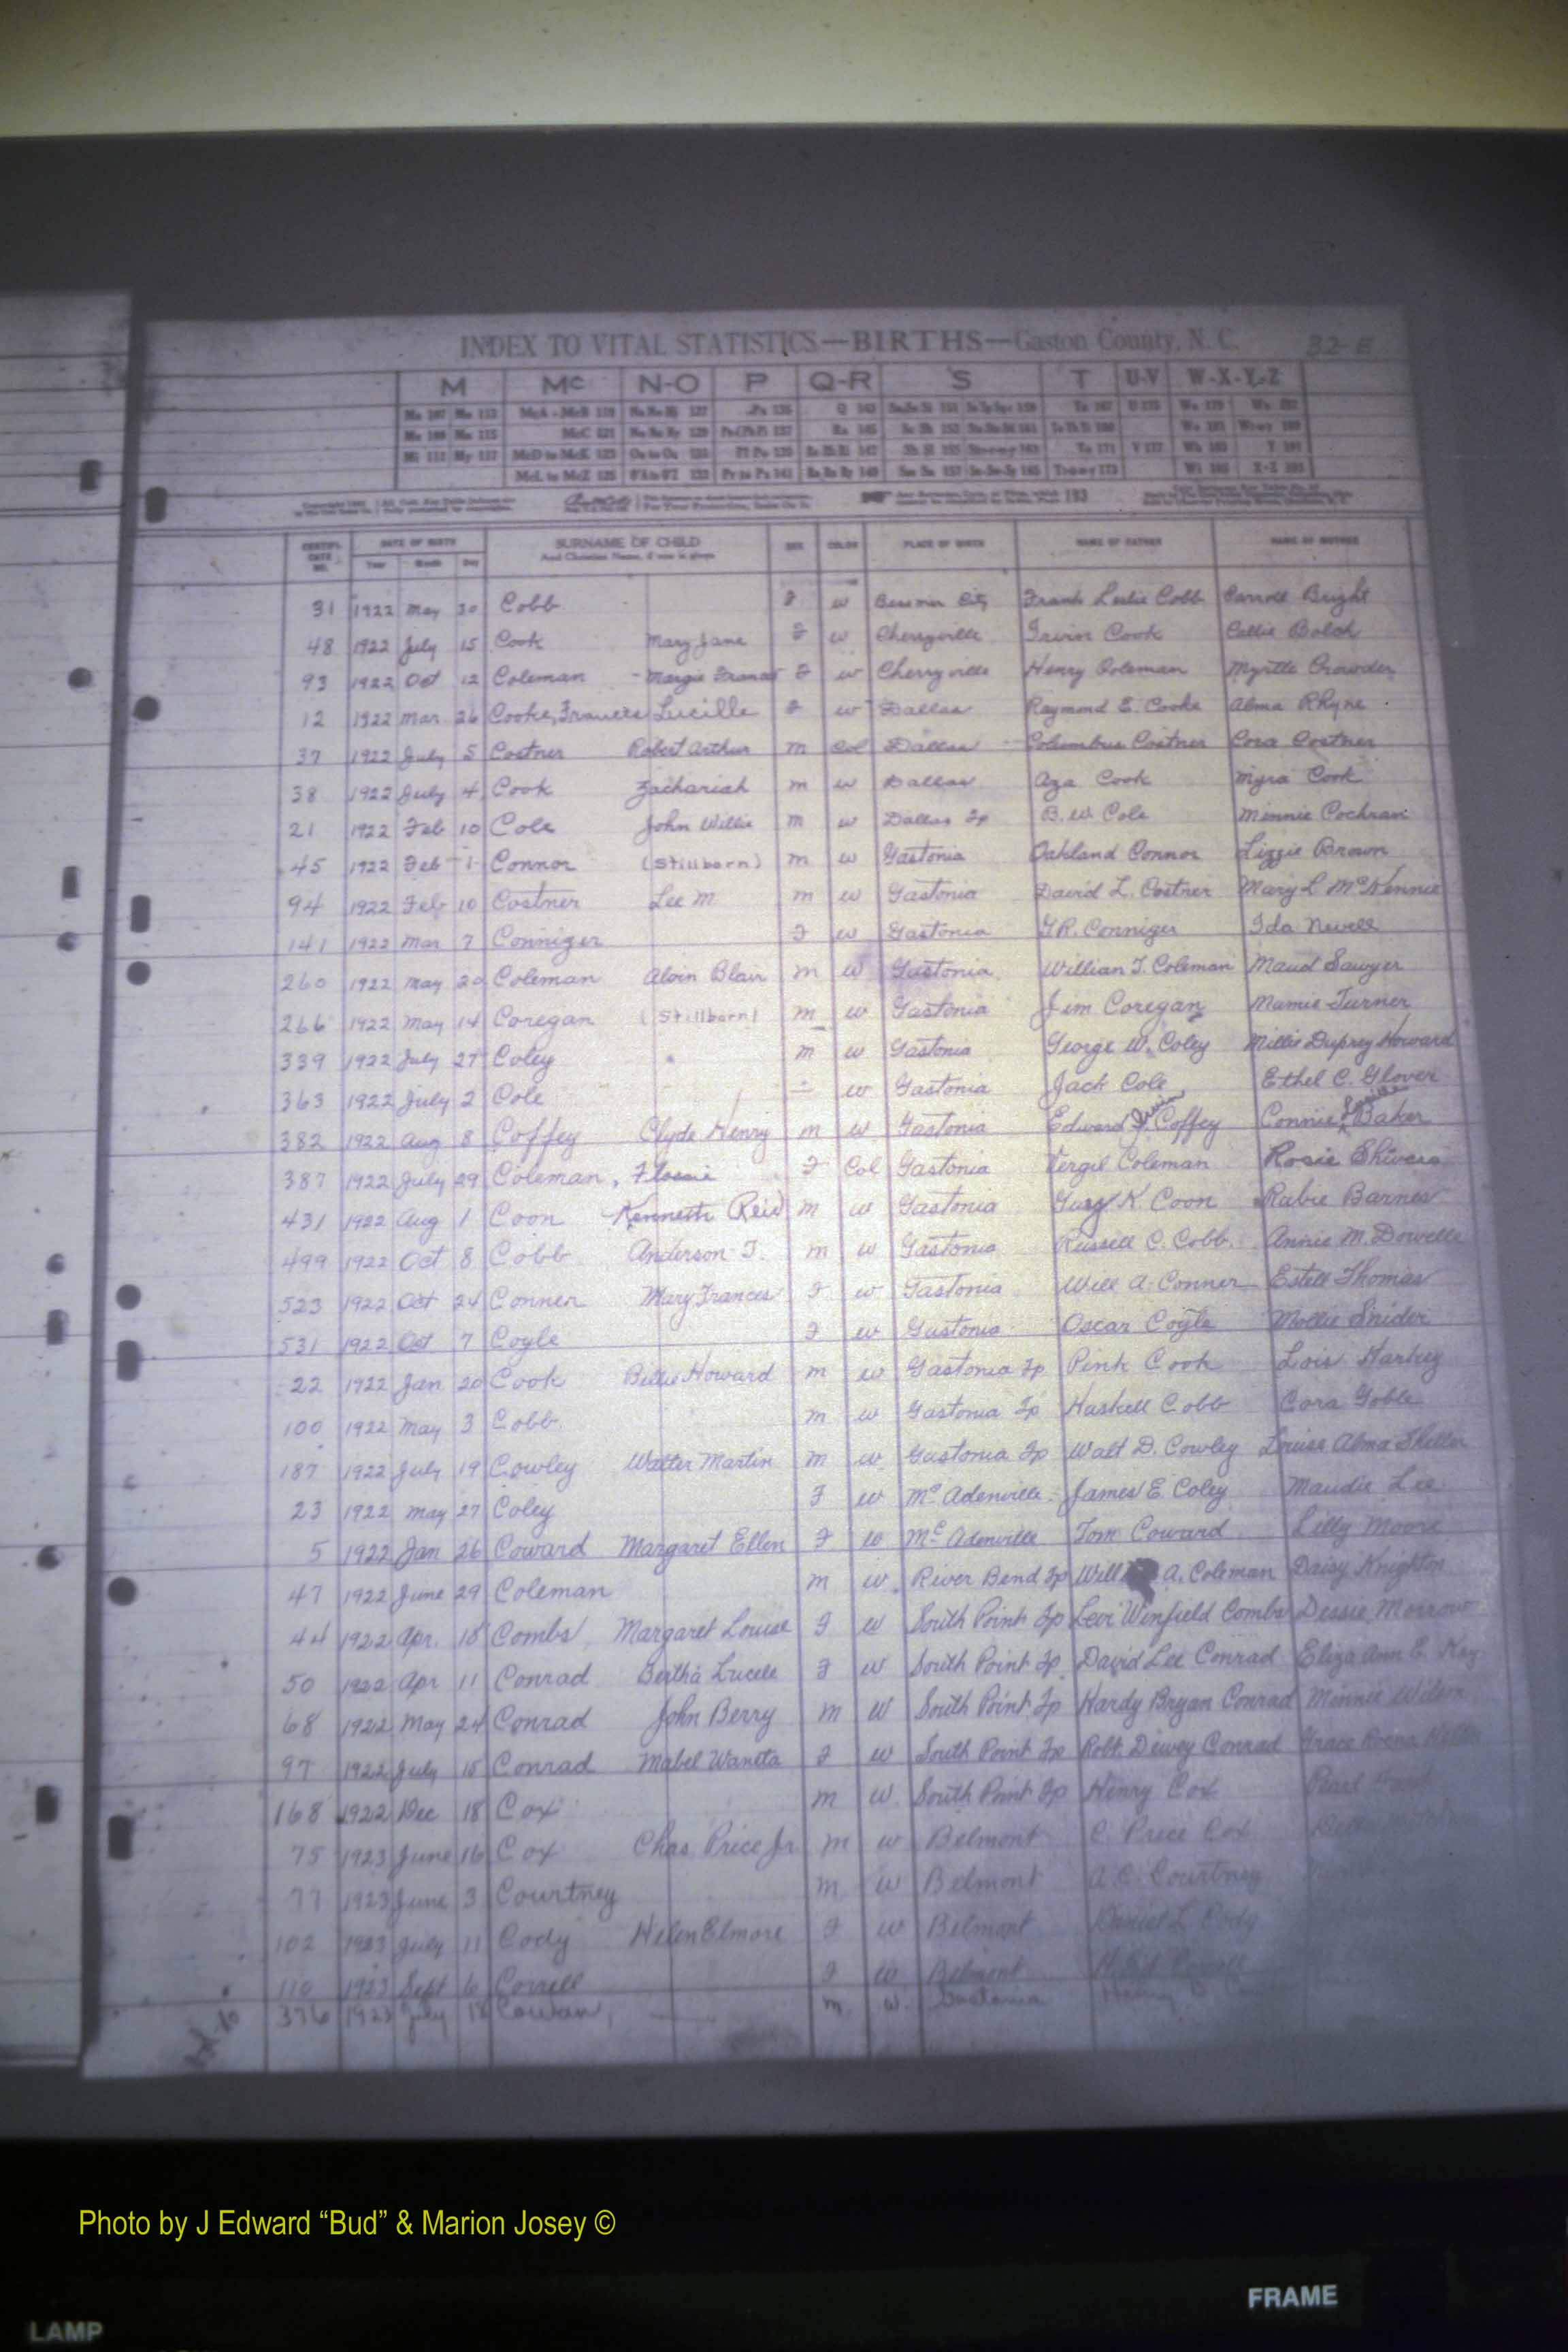 INDEX TO VITAL STATISTICS—BIRTHS—Gaston County, N. C. 32-E
M Mc N-O P Q-R S T U-V W-X-Y-Z
193
CERTIFI-CATE NO. DATE OF BIRTH SURNAME OF CHILD SEX COLOR PLACE OF BIRTH NAME OF FATHER NAME OF MOTHER
Year Month Day And Christian Name, if one is given
31 1922 May 30 Cobb F W Bessmer City Frank Leslie Cobb Carroll Bright
48 1922 July 15 Cook Mary Jane F W Cherryville Irvin Cook Callie Bolch
93 1922 Oct 12 Coleman Margie Frances F W Cherryville Henry Coleman Myrtle Crowder
12 1922 Mar 26 Cooke, Frances Lucille F W Dallas Raymond E. Cooke Alma Rhyne
37 1922 July 5 Costner Robert Arthur M Col Dallas Columbus Costner Cora Costner
38 1922 July 4 Cook Zachariah M W Dallas Aza Cook Myra Cook
21 1922 Feb 10 Cole John Willie M W Dallas Tp B. W. Cole Minnie Cochran
45 1922 Feb 1 Connor (Stillborn) M W Gastonia Oakland Connor Lizzie Brown
94 1922 Feb 10 Costner Lee M M W Gastonia David L. Costner Mary L McKennie
141 1922 Mar 7 Conniger F W Gastonia G.R. Conniger Ida Newell
260 1922 May 20 Coleman Alvin Blair M W Gastonia William T. Coleman Maud Sawyer
266 1922 May 14 Coregan (Stillborn) M W Gastonia Jim Coregan Mamie Turner
339 1922 July 27 Coley M W Gastonia George W. Coley Millie Duprey Howard
363 1922 July 2 Cole — W Gastonia Jack Cole Ethel C. Glover
382 1922 Aug 8 Coffey Clyde Henry M W Gastonia Edward J. Coffey Connie Baker
387 1922 July 29 Coleman, Flossie F Col Gastonia Vergil Coleman Rosie Shivers
431 1922 Aug 1 Coon Kenneth Reid M W Gastonia Guy K. Coon Rabie Barnes
499 1922 Oct 8 Cobb Anderson T. M W Gastonia Russell C. Cobb Annie M. Dowelle
523 1922 Oct 24 Conner Mary Frances F W Gastonia Will A. Conner Estell Thomas
531 1922 Oct 7 Coyle F W Gastonia Oscar Coyle Mollie Snider
22 1922 Jan 20 Cook Billie Howard M W Gastonia Tp Pink Cook Lois Harkey
100 1922 May 3 Cobb M W Gastonia Tp Haskell Cobb Cora Goble
187 1922 July 19 Cowley Walter Martin M W Gastonia Tp Walt D. Cowley Louise Alma
23 1922 May 27 Coley F W McAdenville James E. Coley Maudie Lee
5 1922 Jan 26 Coward Margaret Ellen F W McAdenville Tom Coward Lilly Moore
47 1922 June 29 Coleman M W River Bend Tp Will A. Coleman Daisy Knighton
44 1922 Apr. 18 Combs Margaret Louise F W South Point Tp Levi Winfield Combs Dessie Morrow
50 1922 Apr 11 Conrad Bertha Lucele F W South Point Tp David Lee Conrad Eliza Ann E. Kay
68 1922 May 24 Conrad John Berry M W South Point Tp Hardy Bryan Conrad Minnie Wilson
97 1922 July 15 Conrad Mabel Waneta F W South Point Tp Robt. Dewey Conrad Grace
168 1922 Dec 18 Cox M W South Point Tp Henry Cox Pearl
75 1923 June 16 Cox Chas. Price Jr M W Belmont C. Price Cox
77 1923 June 3 Courtney M W Belmont A. C. Courtney
102 1923 July 11 Cody Helen Elmore F W Belmont Daniel L Cody
110 1923 Sept 6 Correll F W Belmont
376 1923 July 18 Cowan, M. W. Gastonia
Photo by J Edward “Bud” & Marion Josey ©
FRAME
LAMP